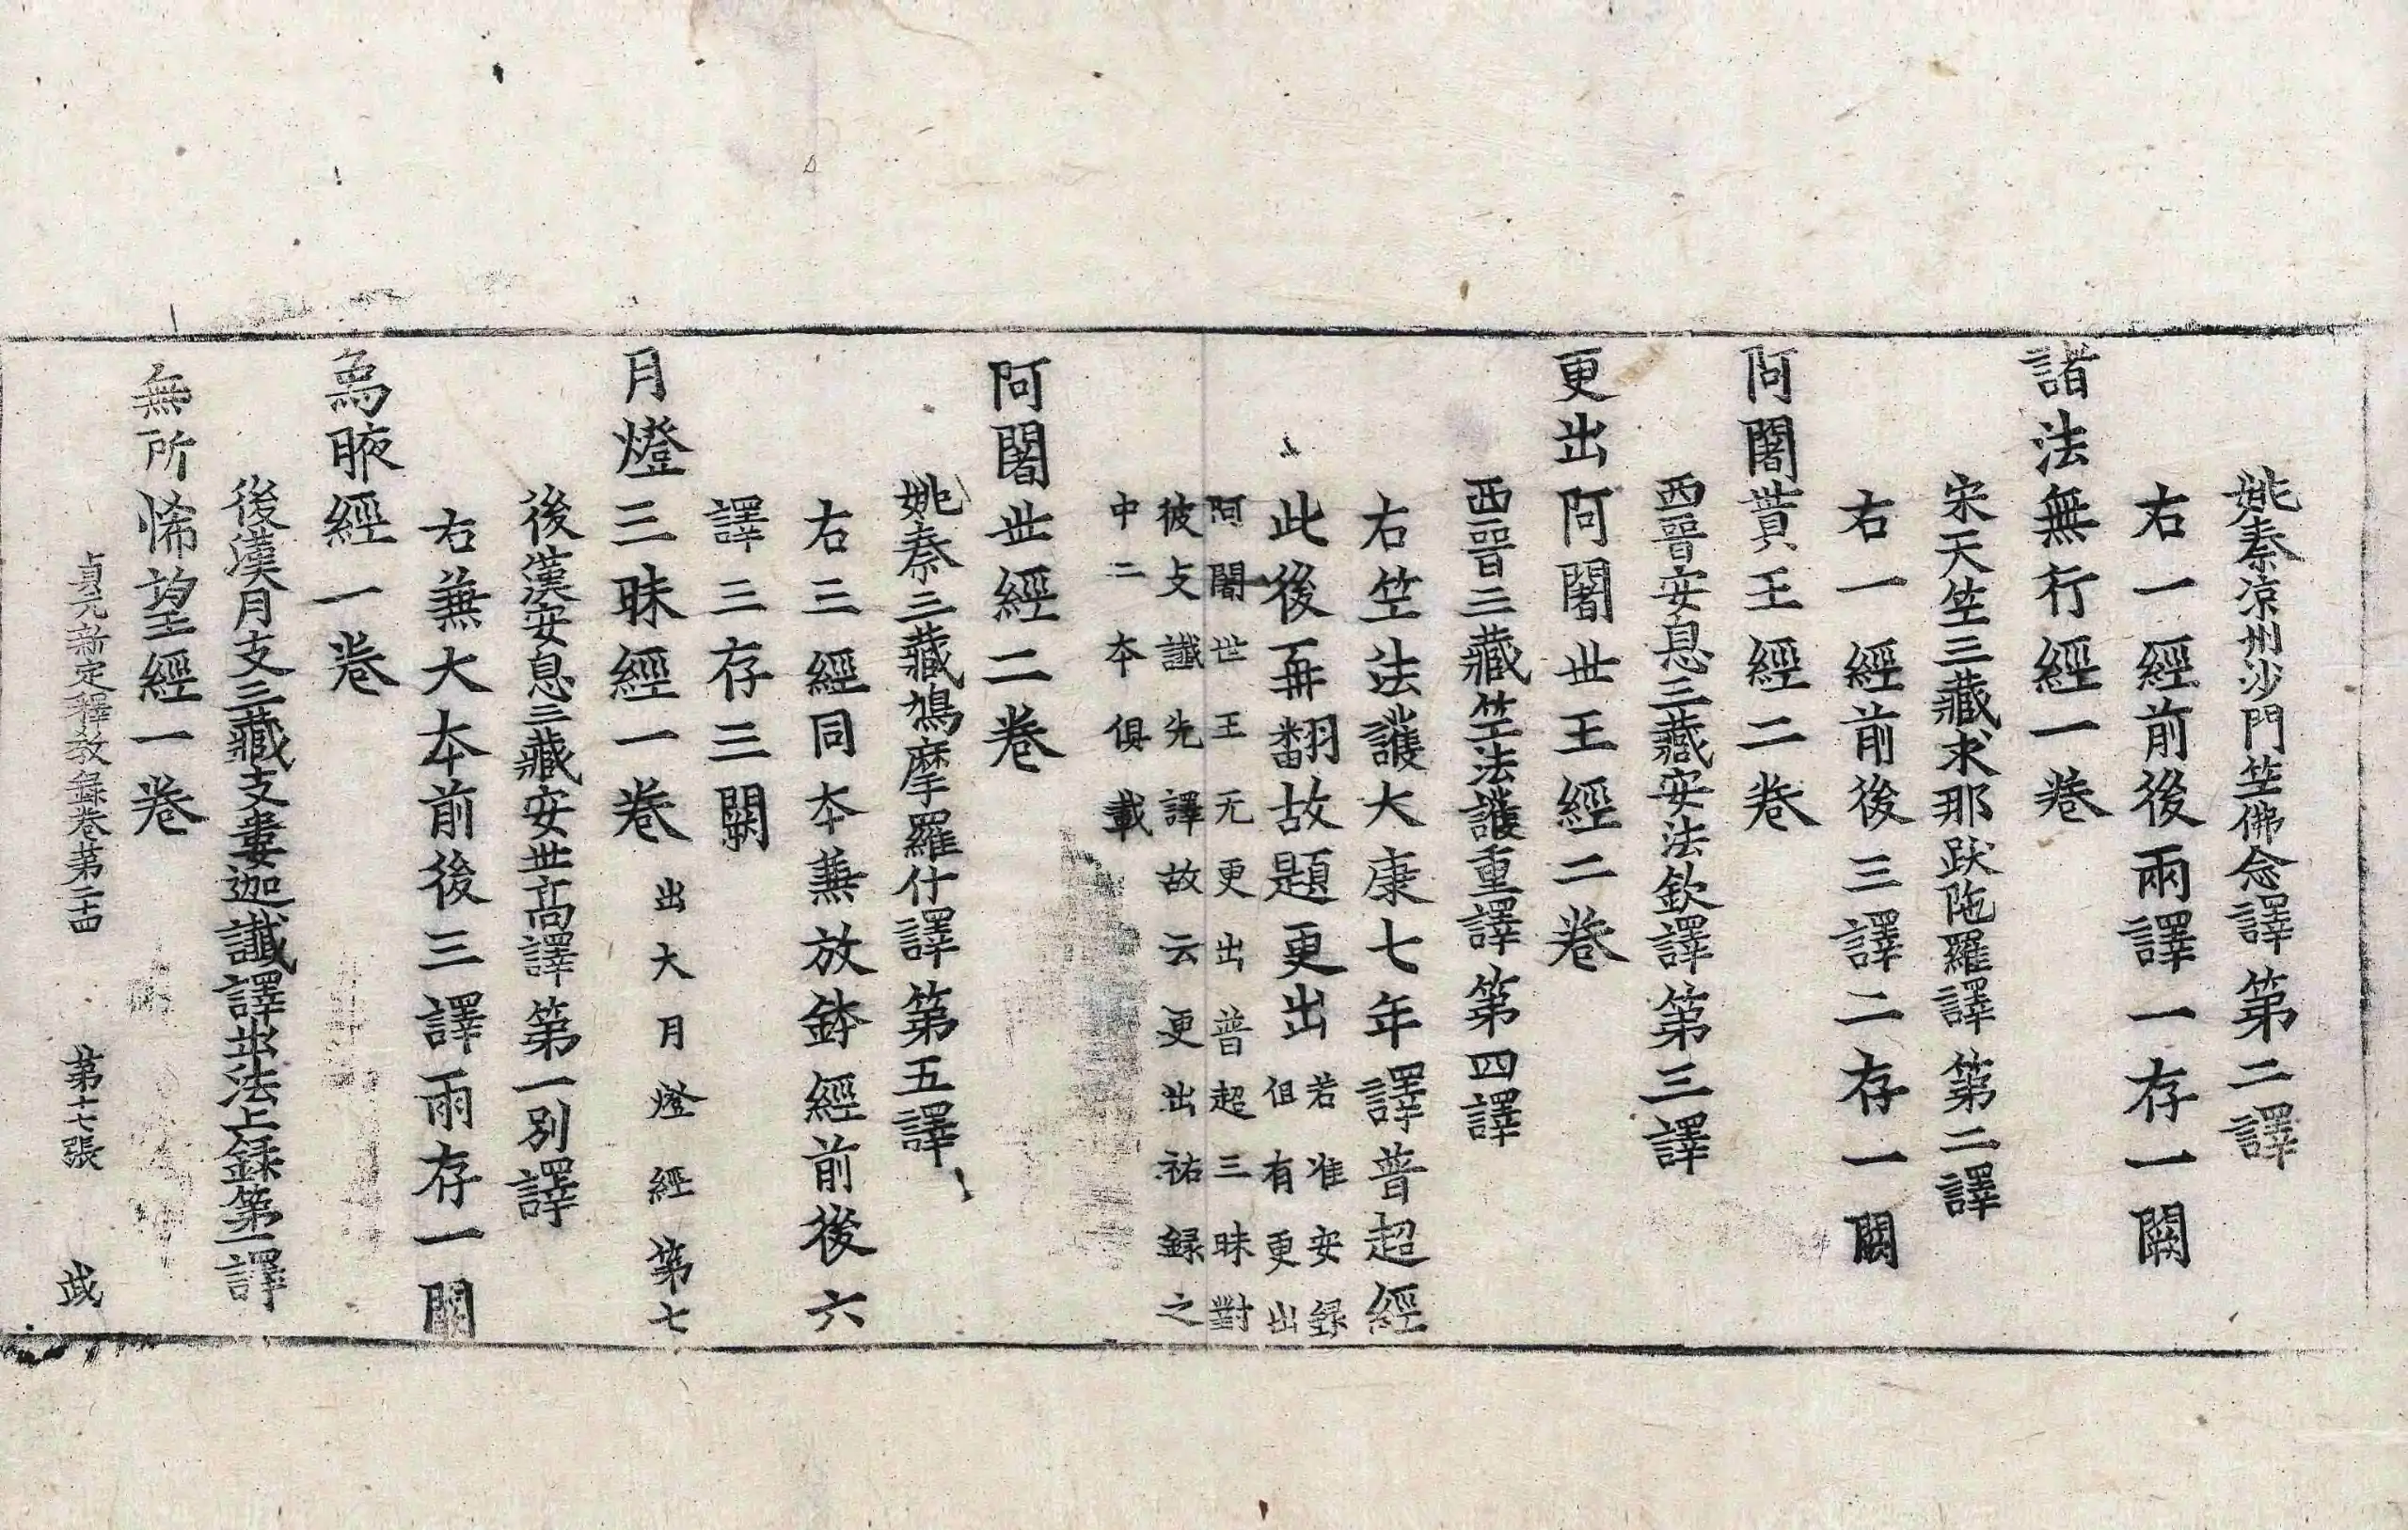 姚秦涼州沙門竺佛念譯第二譯
右一經前後兩譯一存一闕
諸法無行經一卷
宋天竺三藏求那跋陁羅譯第二譯
右一經前後三譯二存一闕
阿闍貰王經二卷
西晉安息三藏安法欽譯第三譯
更出阿闍世王經二卷
西晉三藏竺法護重譯第四譯
右竺法護大康七年譯普超經
此後再翻故題更出若准安録
但有更出
阿闍世王无更出普超三昧對
彼支讖先譯故云更出祐録之
中二本俱載
阿闍世經二卷
姚秦三藏鳩摩羅什譯第五譯
右三經同本兼放鉢經前後六
譯三存三闕
月燈三昧經一卷出大月燈經第七
後漢安息三藏安世高譯第一別譯
右兼大本前後三譯兩存一闕
象腋經一卷
後漢月支三藏支婁迦讖譯出法上録第一譯
無所悕望經一卷
貞元新定釋教録卷第二十四 第十七張 武